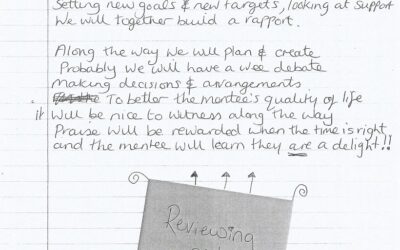 Setting new goals & new targets, looking at support
We will together build a rapport.
Along the way we will plan & create
Probably we will have a wee debate
Making decisions & arrangements
To better the mentee's quality of life
it will be nice to witness along the way
Praise will be rewarded when the time is right
and the mentee will learn they are a delight!!
Reviewing